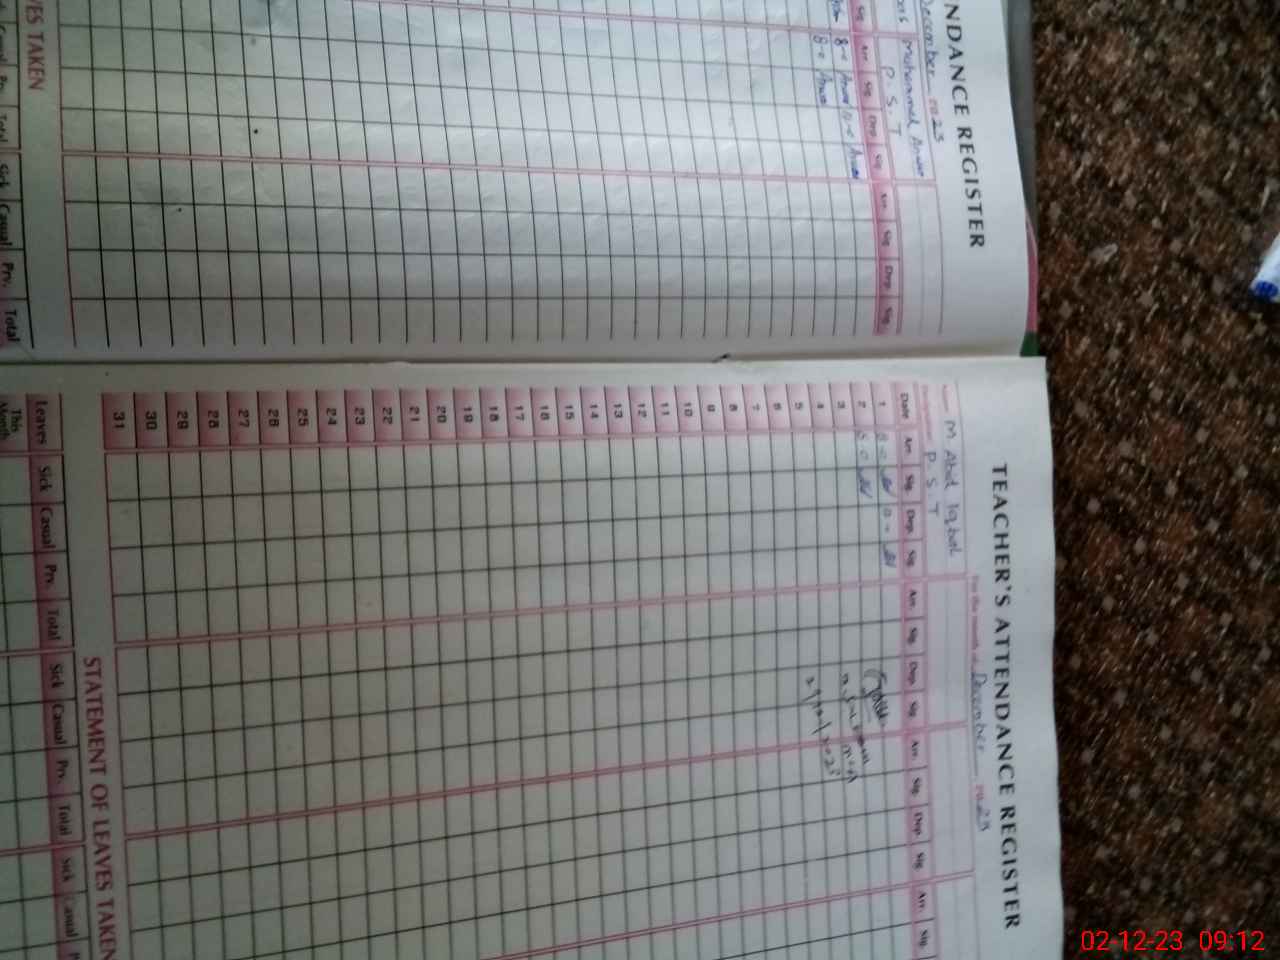 NDANCE REGISTER
December 2023
Muhammad Anwar
P. S. T
Sig. Arr. Sig. Dep. Sig. Arr. Sig. Dep. Sig.
8-0 Anwar Anwar
8-0 Anwar
VES TAKEN
Casual Prv. Total Sick Casual Prv. Total
TEACHER'S ATTENDANCE REGISTER
For the month of December 2023
Name M. Abid Iqbal
P. S. T
Date Arr. Sig. Dep. Sig. Arr. Sig. Dep. Sig. Arr. Sig. Dep. Sig. Arr. Sig.
1 8-0
2 8-0
3
4
5
6
7
8
9
10
11
12
13
14
15
16
17
18
19
20
21
22
23
24
25
26
27
28
29
30
31
STATEMENT OF LEAVES TAKEN
Leaves Sick Casual Prv. Total Sick Casual Prv. Total Sick Casual
This Month
02-12-23 09:12